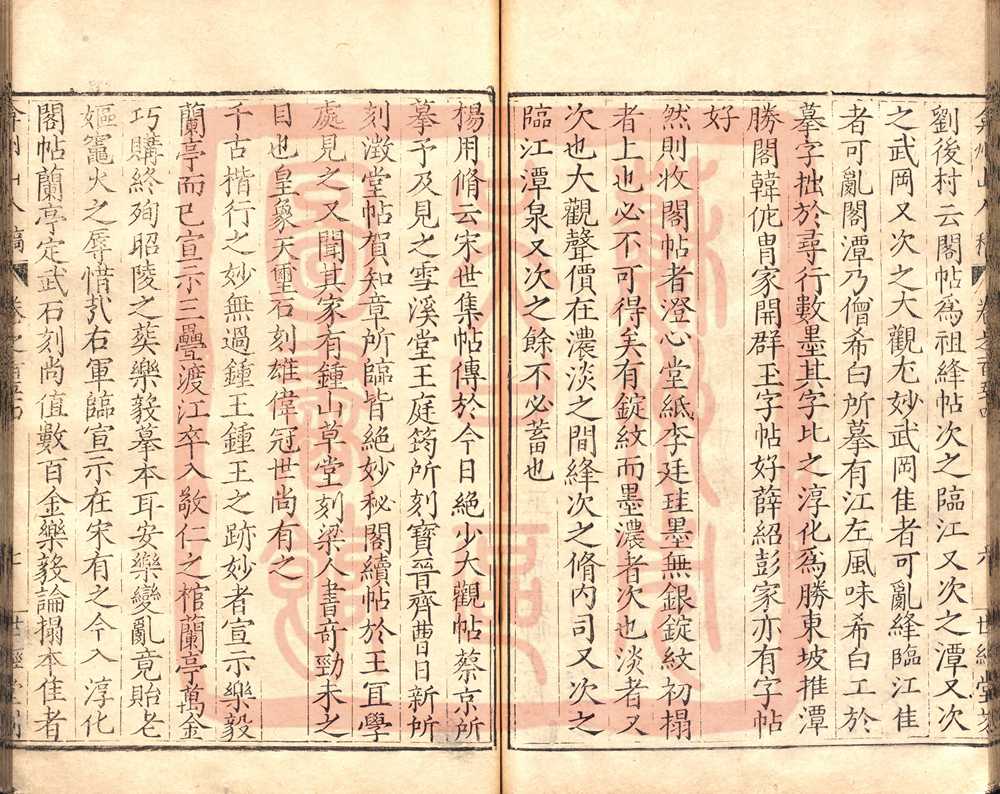 劉後村云閣帖爲祖絳帖次之臨江又次之潭又次
之武岡又次之大觀尤妙武岡佳者可亂絳臨江佳
者可亂閣潭乃僧希白所摹有江左風味希白工於
摹字拙於尋行數墨其字比之淳化爲勝東坡推潭
勝閣韓侂冑家開群玉字帖好薛紹彭家亦有字帖
好
然則收閣帖者澄心堂紙李廷珪墨無銀錠紋初搨
者上也必不可得矣有錠紋而墨濃者次也淡者又
次也大觀聲價在濃淡之間絳次之脩內司又次之
臨江潭泉又次之餘不必蓄也
楊用脩云宋世集帖傳於今日絕少大觀帖蔡京所
摹予及見之雪溪堂王庭筠所刻寶晉齊曹日新所
刻澂堂帖賀知章所臨皆絕妙秘閣續帖於王宜學
處見之又聞其家有鍾山草堂刻梁人書奇勁未之
目也皇彖天璽石刻雄偉冠世尚有之
千古楷行之妙無過鍾王鍾王之跡妙者宣示樂毅
蘭亭而已宣示三疊渡江卒入敬仁之棺蘭亭萬金
巧購終殉昭陵之葬樂毅摹本耳安樂變亂竟貽老
嫗竈火之辱惜㢤右軍臨宣示在宋有之今入淳化
閣帖蘭亭定武石刻尚值數百金樂毅論搨本佳者